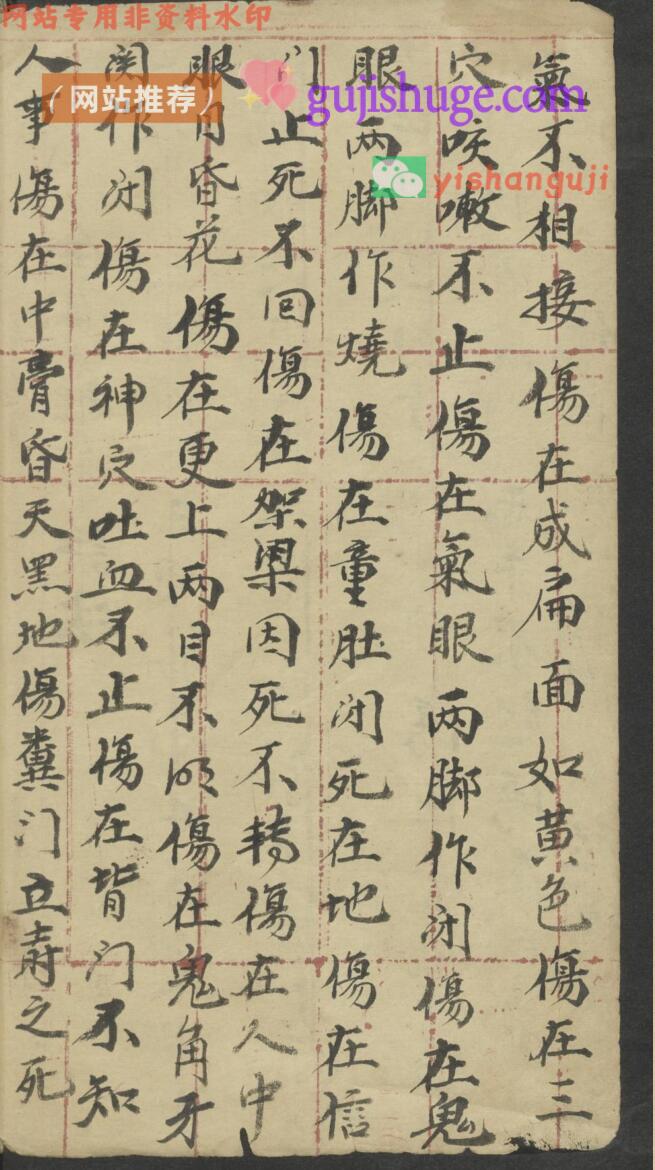 网站专用非资料水印
（网站推荐）
gujishuge.com
yishanguji
氣不相接傷在成扁面如黃色傷在三
穴咳嗽不止傷在氣眼两脚作闭傷在鬼
眼两脚作燒傷在童肚闭死在地傷在信
门止死不回傷在架梁因死不轉傷在人中
眼目昏花傷在更上两目不明傷在鬼角牙
関作闭傷在神穴吐血不止傷在背门不知
人事傷在中膏昏天黑地傷糞门立尌之死